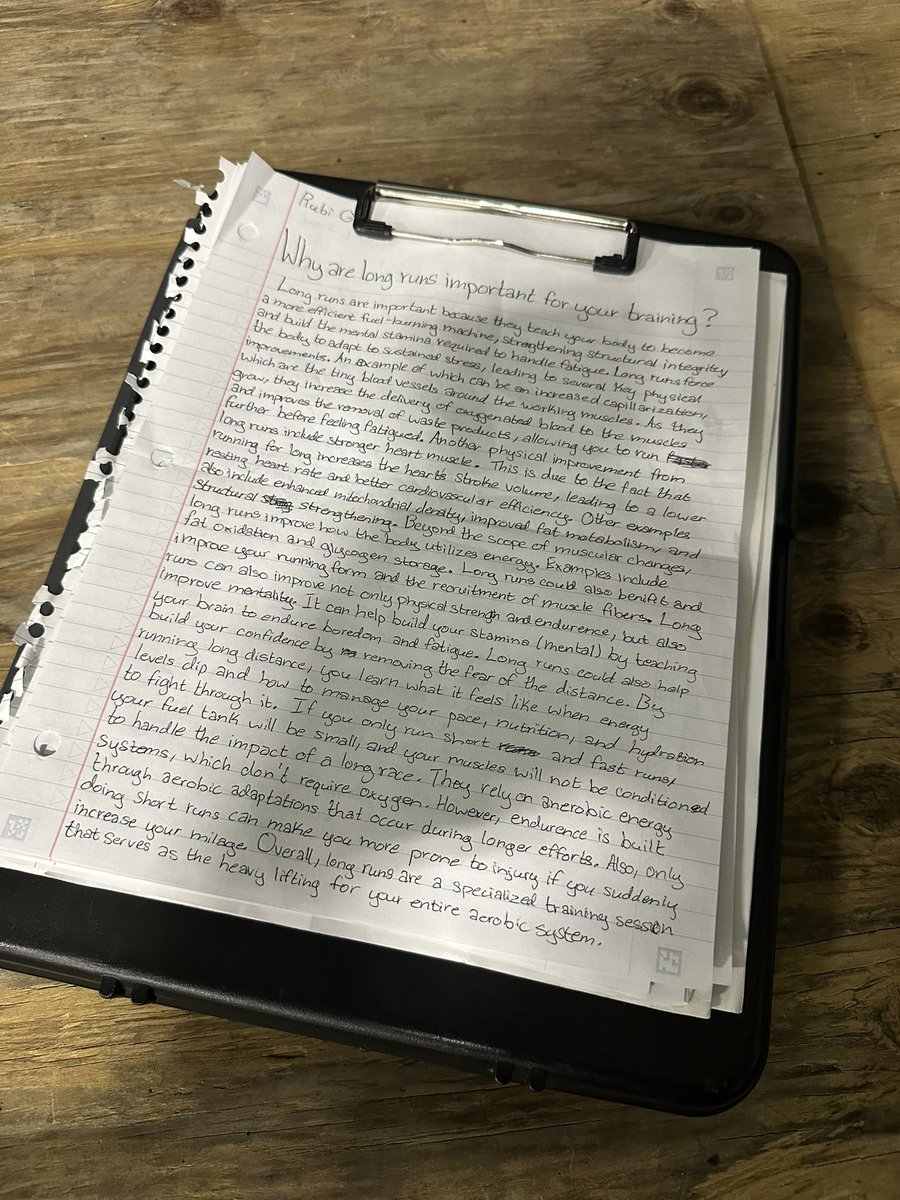 Rubi G
Why are long runs important for your training?
Long runs are important because they teach your body to become
a more efficient fuel-burning machine, strengthening structural integrity
and build the mental stamina required to handle fatigue. Long runs force
the body to adapt to sustained stress, leading to several key physical
improvements. An example of which can be an increased capillarization,
which are the tiny blood vessels around the working muscles. As they
grow, they increase the delivery of oxygenated blood to the muscles
and improves the removal of waste products, allowing you to run
further before feeling fatigued. Another physical improvement from
long runs include stronger heart muscle. This is due to the fact that
running for long increases the hearts stroke volume, leading to a lower
resting heart rate and better cardiovascular efficiency. Other examples
also include enhanced mitochondrial density, improved fat metabolism, and
structural strengthening. Beyond the scope of muscular changes,
long runs improve how the body utilizes energy. Examples include
fat oxidation and glycogen storage. Long runs could also benifit and
improve your running form and the recruitment of muscle fibers. Long
runs can also improve not only physical strength and endurence, but also
improve mentality. It can help build your stamina (mental) by teaching
your brain to endure boredom and fatigue. Long runs could also help
build your confidence by removing the fear of the distance. By
running long distance, you learn what it feels like when energy
levels dip and how to manage your pace, nutrition, and hydration
to fight through it. If you only run short and fast runs,
your fuel tank will be small, and your muscles will not be conditioned
to handle the impact of a long race. They rely on anerobic energy
systems, which don't require oxygen. However, endurance is built
through aerobic adaptations that occur during longer efforts. Also, only
doing short runs can make you more prone to injury if you suddenly
increase your milage. Overall, long runs are a specialized training session
that serves as the heavy lifting for your entire aerobic system.